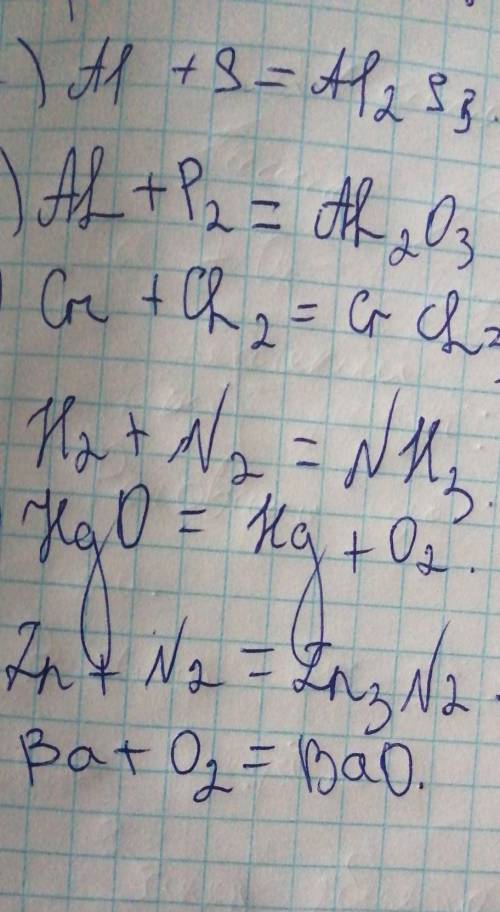 ) Al + S = Al₂ S₃.
) Al + P₂ = Al₂O₃
Cr + Cl₂ = Cr Cl₃
H₂ + N₂ = NH₃.
HgO = Hg + O₂.
Zn + N₂ = Zn₃N₂.
Ba + O₂ = BaO.